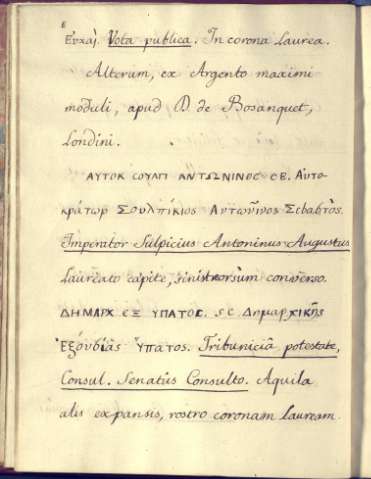 8
Ευχαὶ. Vota publica. In corona Laurea.
Alterum, ex Argento maximi
moduli, apud D. de Bosanquet,
Londini.
ΑΥΤΟΚ CΟΥΛΠ ΑΝΤΩΝΙΝΟC CΕΒ. Αὐτο-
κράτωρ Σουλπίκιος Αντωνῖνος Σεbαbτὸς.
Imperator Sulpicius Antoninus Augustus
Laureato capite, sinistrorsùm converso.
ΔΗΜΑΡΧ ΕΞ ΥΠΑΤΟC. SC Δημαρχικῆς
Ἐξουbίας Ὕπατος. Tribuniciâ potestate,
Consul. Senatûs Consulto. Aquila
alis expansis, rostro coronam lauream